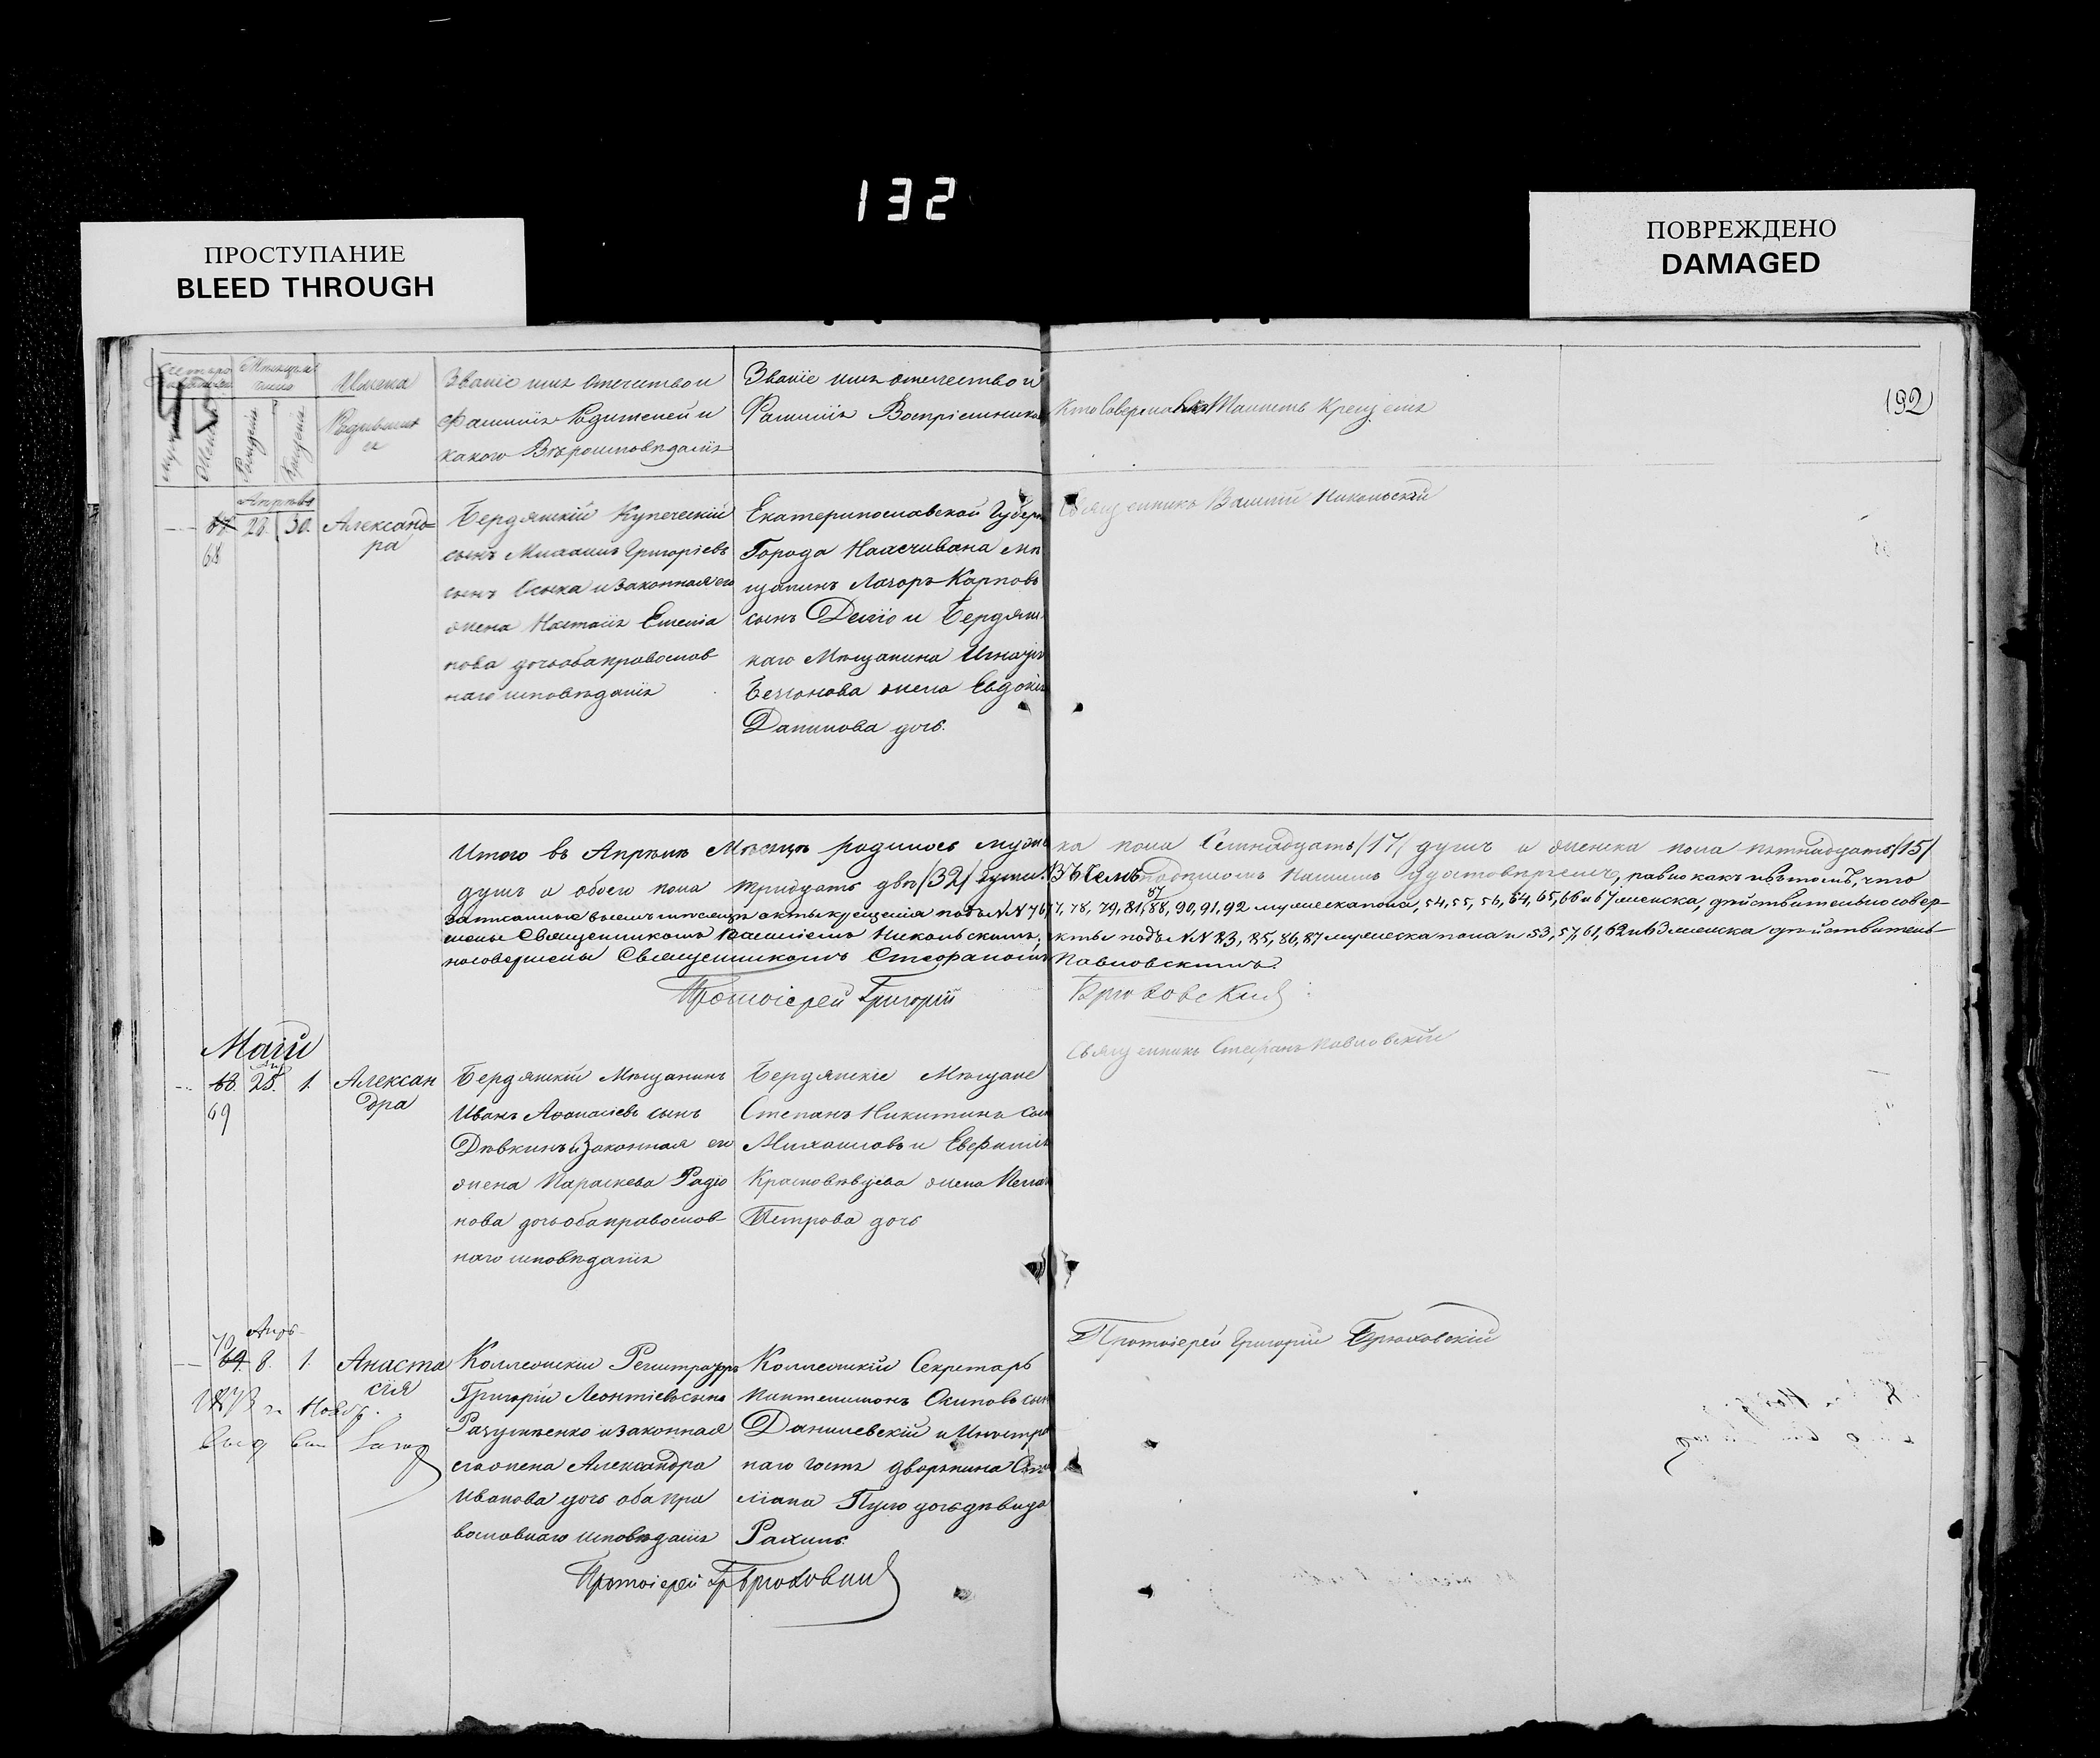 132
ПРОСТУПАНИЕ
BLEED THROUGH
ПОВРЕЖДЕНО
DAMAGED
192
Имена
Званіе имя Отечество и
Фамилія Родителей и
какого Вѣроисповѣданія
Званіе имя отечество и
Фамилія Воспріемников
Кто Совершалъ Таинство Крещенія
Рожденія
Крещенія
Апрѣль
67. 28. 30.
68
Александ=
ра
Бердянскій Купеческій
сынъ Михаилъ Григоріевъ
сынъ и законная его
жена Наталія
нова дочь оба православ
наго исповѣданія
Екатеринославской Губерн
Города Нахичивана мѣ
щанинъ Лазарь Карповъ
сынъ и Бердянс
каго Мѣщанина Игнатія
жена Евдокія
Данилова дочь.
Священникъ Василій Никольскій
Итого въ Апрѣлѣ Мѣсяцѣ родилось мужеска пола Семнадцать /17/ душъ и женска пола пятнадцать /15/
душъ а обоего пола тридцать двѣ /32/ души. Въ чемъ подписомъ нашимъ удостовѣряемъ, равно какъ и въ томъ, что
записанные въ семъ мѣсяцѣ акты крещенія подъ №№ 76, 77, 78, 79, 81, 87, 88, 90, 91, 92 мужеска пола, 54, 55, 56, 64, 65, 66 и 67 женска, дѣйствительно совер-
шены Священникомъ Василіемъ Никольскимъ, акты подъ №№ 83, 85, 86, 87 мужеска пола и 53, 57, 61, 62 и женска дѣйствитель-
но совершены Священникомъ Стефаномъ Павловскимъ.
Протоіерей Григорій Брюховскій
Маій
68. 28. 1.
69
Алексан
дра
Бердянскій Мѣщанинъ
Иванъ Афанасіевъ сынъ
Дѣвкинъ и Законная его
жена Параскева Родіо
нова дочь оба православ
наго исповѣданія
Бердянскіе Мѣщане
Степанъ Никитинъ сын
Михаиловъ и
жена
Петрова дочь
Священникъ Стефанъ Павловскій
70
69. 8. 1.
Анаста
сія
Коллежскій Регистраторъ
Григорій Леонтіевъ сынъ
и законная
его жена Александра
Иванова дочь оба пра
вославнаго исповѣданія
Коллежскій Секретарь
Пантелимонъ Осиповъ сын
Данилевскій и Иностра
наго гостя дворянина
дочь дѣвица
Протоіерей Григорій Брюховскій
Протоіерей Гр Брюховскій